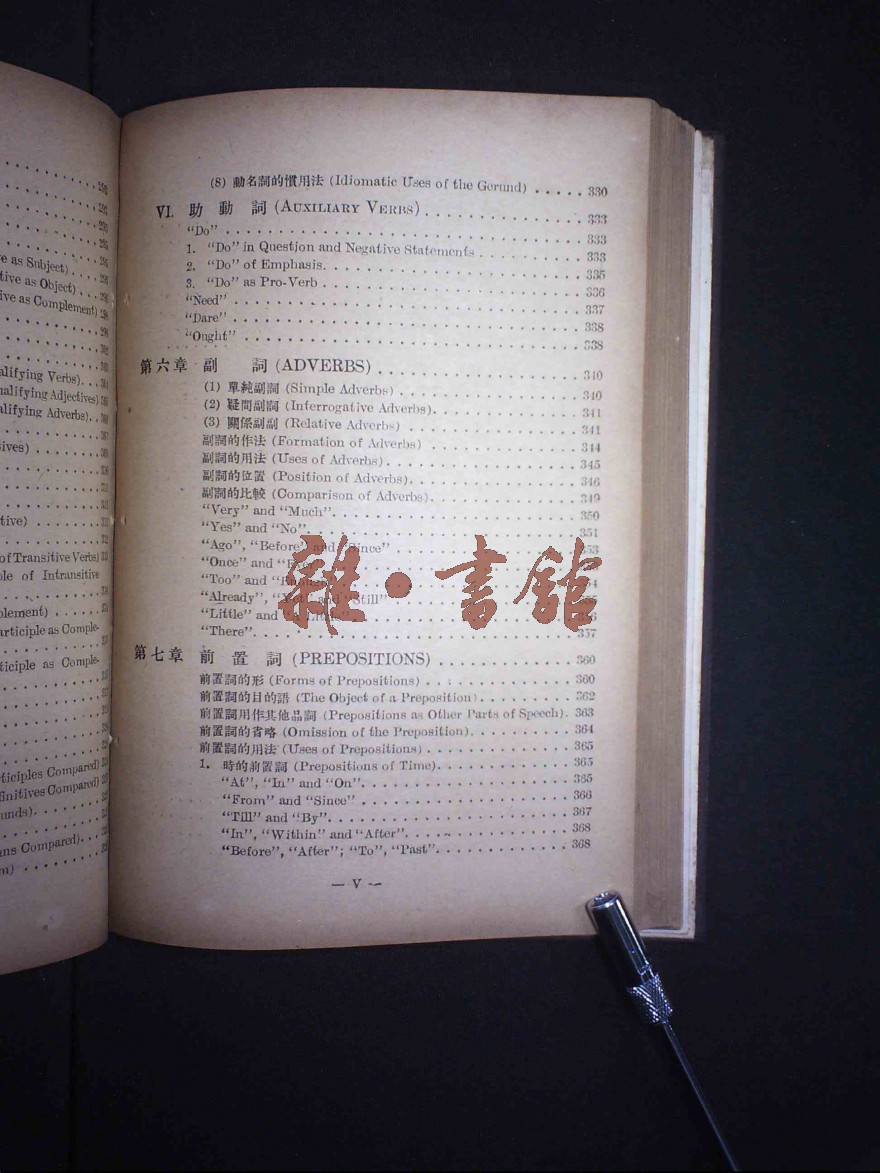 298
293
293
295
e as Subject) 295
tive as Object) 296
ive as Complement) 298
298
alifying Verbs)
ualifying Adjectives)
alifying Adverbs)
ives)
tive)
of Transitive Verbs)
ple of Intransitive
plement)
articiple as Comple-
ticiple as Comple-
ticiples Compared)
finitives Compared)
unds)
ns Compared)
m)
(8) 動名詞的慣用法 (Idiomatic Uses of the Gerund) ..... 330
VI. 助動詞 (AUXILIARY VERBS) ..... 333
“Do” ..... 333
1. “Do” in Question and Negative Statements ..... 333
2. “Do” of Emphasis ..... 335
3. “Do” as Pro-Verb ..... 336
“Need” ..... 337
“Dare” ..... 338
“Ought” ..... 338
第六章 副詞 (ADVERBS) ..... 340
(1) 單純副詞 (Simple Adverbs) ..... 340
(2) 疑問副詞 (Interrogative Adverbs) ..... 341
(3) 關係副副 (Relative Adverbs) ..... 341
副詞的作法 (Formation of Adverbs) ..... 344
副詞的用法 (Uses of Adverbs) ..... 345
副詞的位置 (Position of Adverbs) ..... 346
副詞的比較 (Comparison of Adverbs) ..... 349
“Very” and “Much” ..... 350
“Yes” and “No” ..... 351
“Ago”, “Before” and “Since” ..... 353
“Once” and
“Too” and
“Already”, and “Still”
“Little” and
“There” ..... 357
雜·書館
第七章 前置詞 (PREPOSITIONS) ..... 360
前置詞的形 (Forms of Prepositions) ..... 360
前置詞的目的語 (The Object of a Preposition) ..... 362
前置詞用作其他品詞 (Prepositions as Other Parts of Speech). 363
前置詞的省略 (Omission of the Preposition) ..... 364
前置詞的用法 (Uses of Prepositions) ..... 365
1. 時的前置詞 (Prepositions of Time) ..... 365
“At”, “In” and “On” ..... 365
“From” and “Since” ..... 366
“Till” and “By” ..... 367
“In”, “Within” and “After” ..... 368
“Before”, “After”; “To”, “Past” ..... 368
— V —